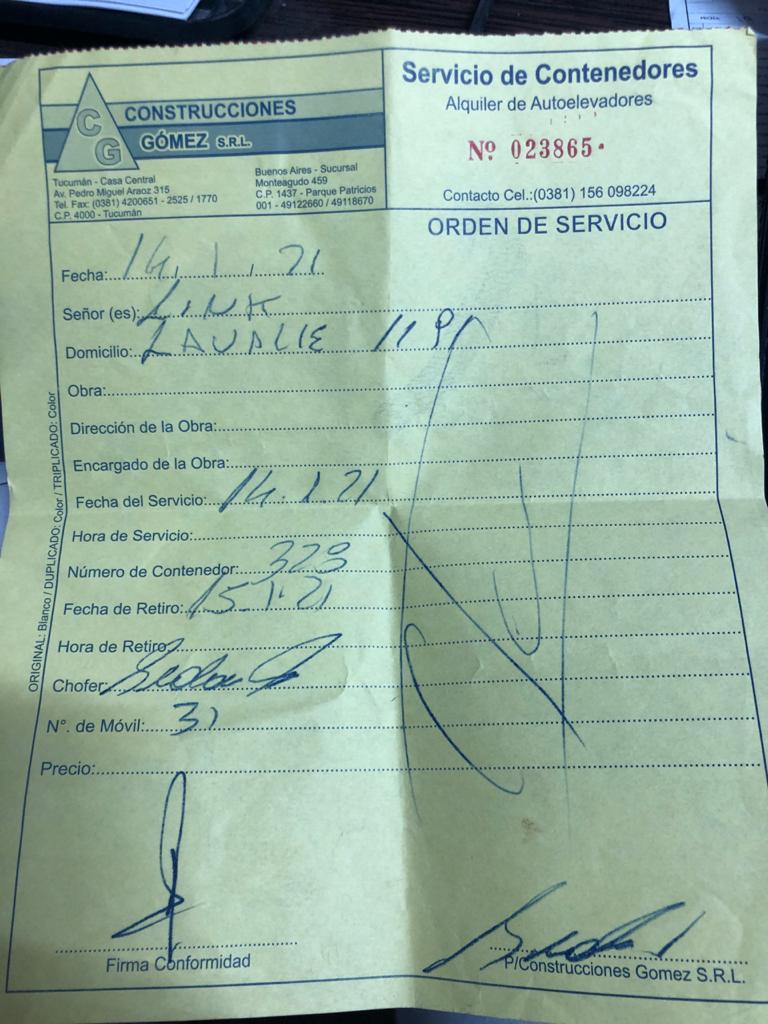 CG
CONSTRUCCIONES
GÓMEZ S.R.L.
Tucumán - Casa Central
Av. Pedro Miguel Araoz 315
Tel. Fax: (0381) 4200651 - 2525 / 1770
C.P. 4000 - Tucumán
Buenos Aires - Sucursal
Monteagudo 459
C.P. 1437 - Parque Patricios
001 - 49122660 / 49118670
Servicio de Contenedores
Alquiler de Autoelevadores
Nº 023865
Contacto Cel.:(0381) 156 098224
ORDEN DE SERVICIO
Fecha: 14. 1. 21
Señor (es): LINK
Domicilio: LAVALLE
Obra:
Dirección de la Obra:
Encargado de la Obra:
Fecha del Servicio: 14. 1. 21
Hora de Servicio:
Número de Contenedor: 328
Fecha de Retiro: 15.1.21
Hora de Retiro
Chofer:
N°. de Móvil: 31
Precio:
Firma Conformidad
P/Construcciones Gomez S.R.L.
ORIGINAL: Blanco / DUPLICADO: Color / TRIPLICADO: Color